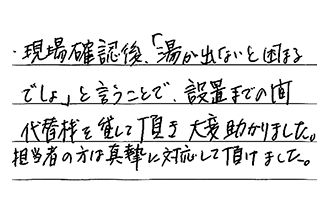 ・現場確認後、「湯が出ないと困る
でしょ」と言うことで、設置までの間
代替機を貸して頂き大変助かりました。
担当者の方は真摯に対応して頂けました。